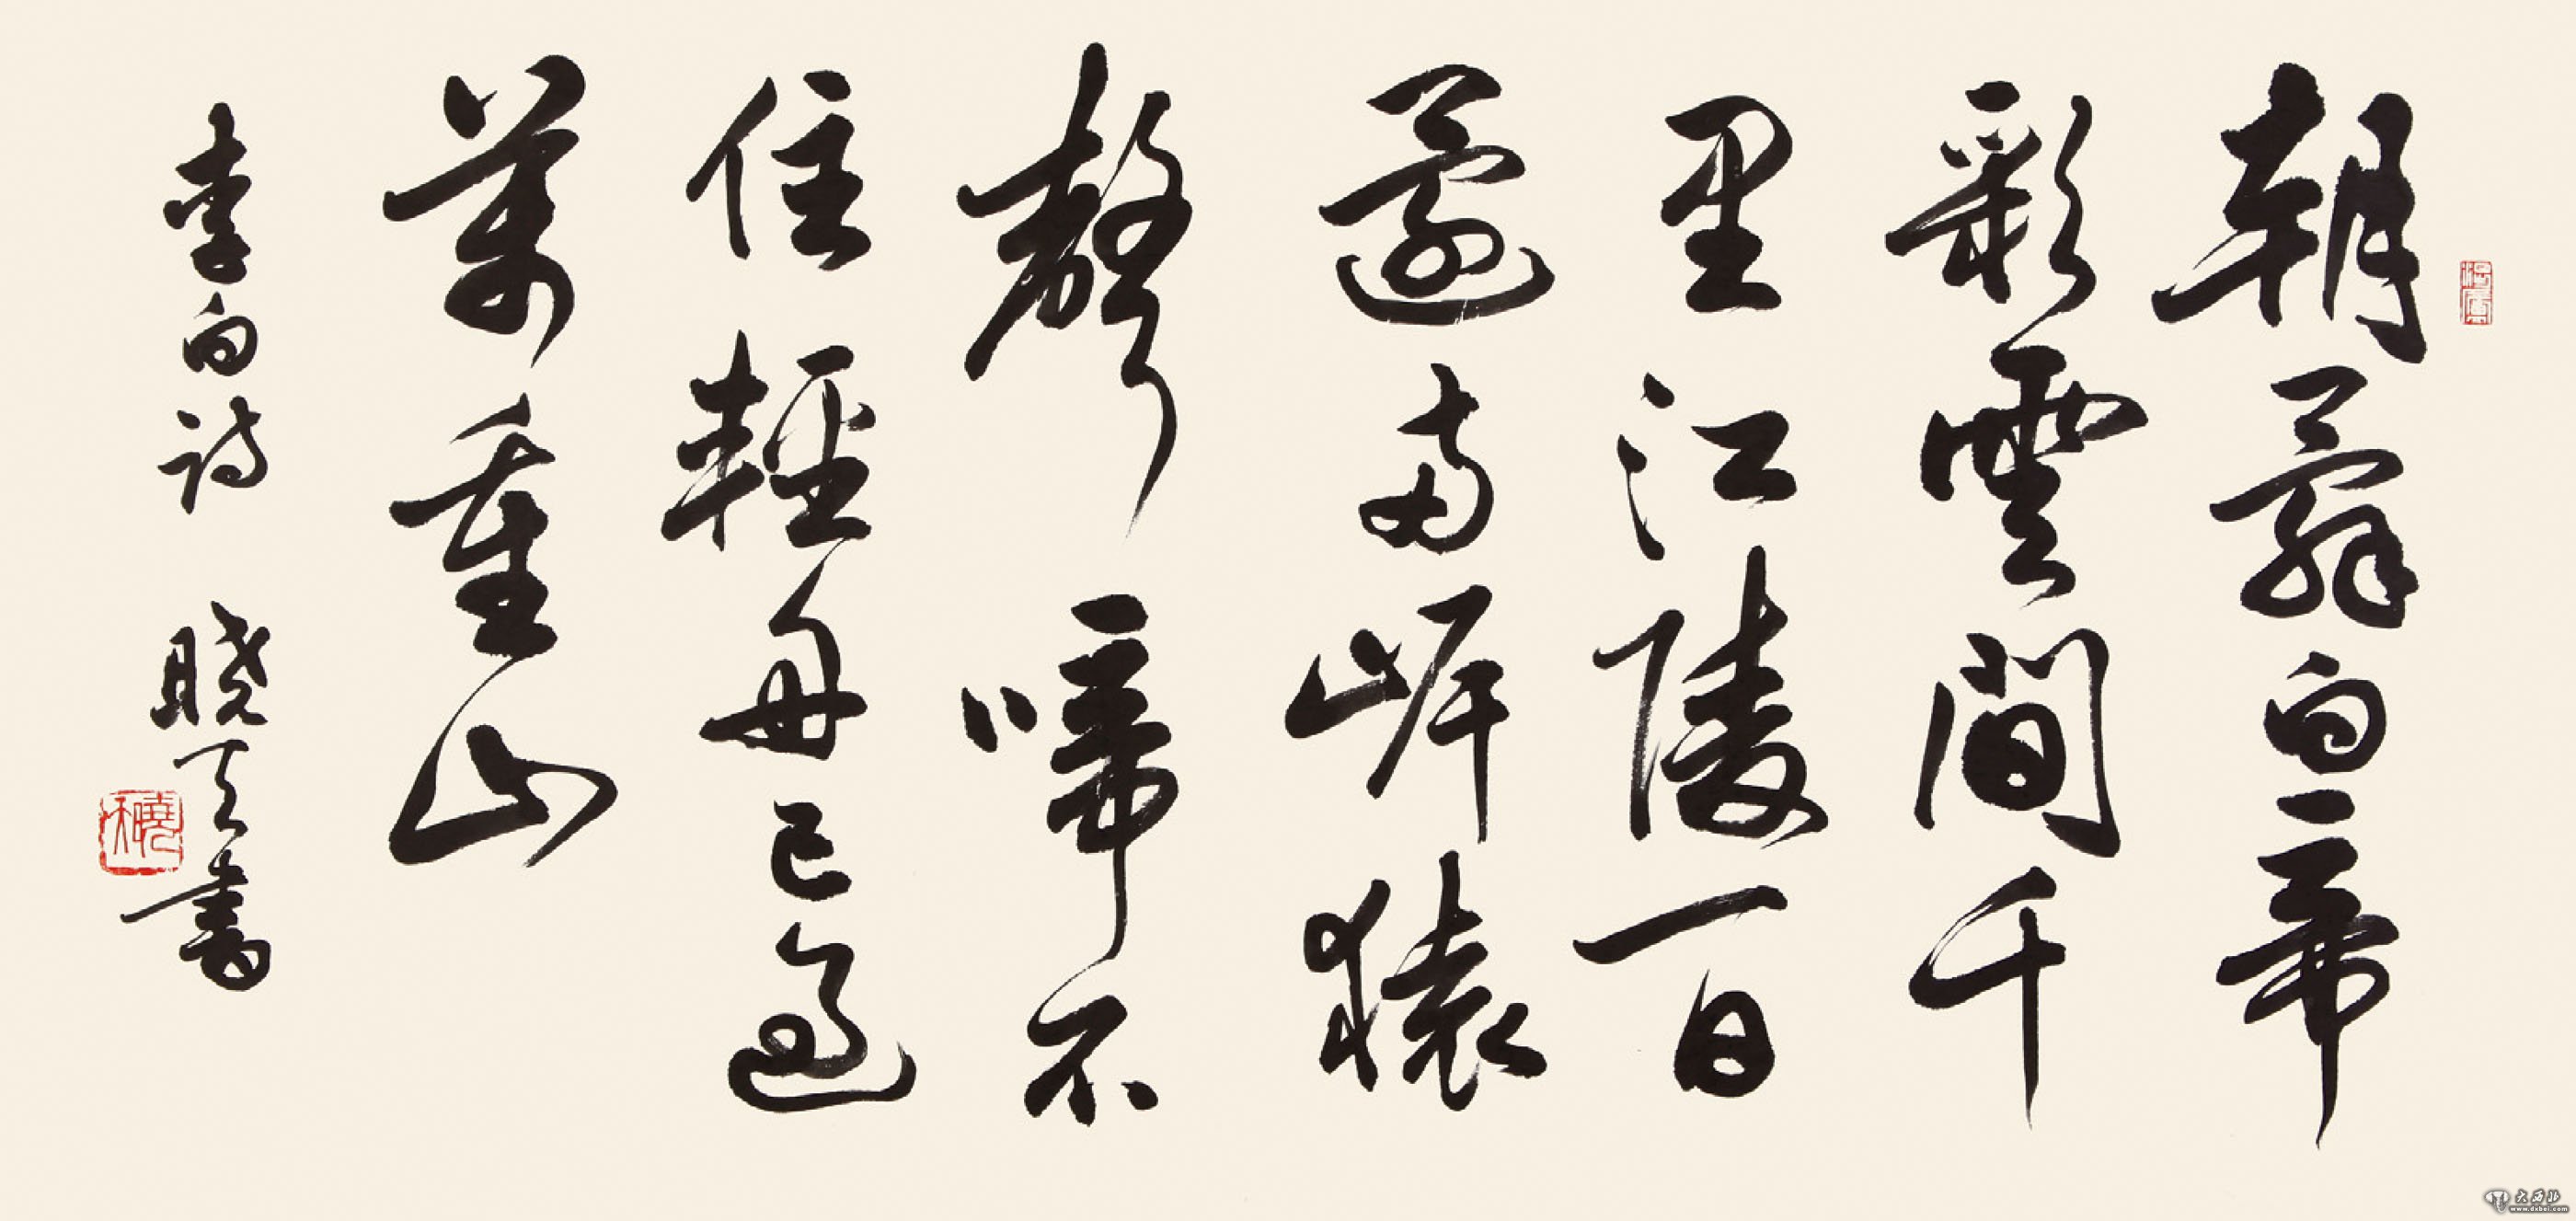 朝辭白帝
彩雲間千
里江陵一日
還兩岸猿
聲啼不
住輕舟已過
萬重山
李白詩 曉天書
曉天
大西北
www.dxbei.com